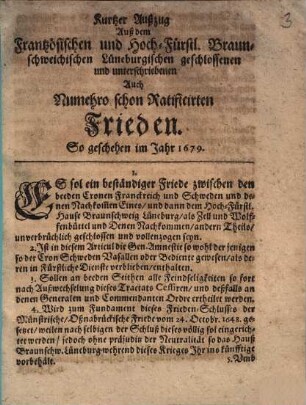 3
Kurtzer Außzug
Auß dem
Frantzösischen und Hoch-Fürstl. Braun-
schweichischen Lüneburgischen geschlossenen
und unterschriebenen
Auch
Nunmehro schon Ratificirten
Frieden.
So geschehen im Jahr 1679.
1.
ES sol ein beständiger Friede zwischen den
beeden Cronen Franckreich und Schweden und de-
nen Nachfolsen Eines/ und dann dem Hoch-Fürstl.
Hause Braunschweig Lüneburg/ als Zell und Wolf-
fenbüttel und Denen Nachkommen/ andern Theils/
unverbrüchlich geschlossen und vollenzogen seyn.
2. Ist in diesem Articul die Gen-Amnestie so wohl der jenigen
so der Cron Schweden Vasallen oder Bediente gewesen/ als de-
ren in Fürstliche Dienste verblieben/ enthalten.
3. Sollen an beeden Seithen alle Feindseligkeiten so fort
nach Außwechselung dieses Tractats Cessiren/ und deßfalls an
denen Generalen und Commendanten Ordre ertheilet werden.
4. Wird zum Fundament dieses Frieden-Schlusses der
Münstrische/ Oßnabrückische Friede vom 24. Octobr. 1648. ge-
setzet/ weilen nach selbigen der Schluß dieses völlig sol eingerich-
tet werden/ jedoch ohne præjudiz der Neutralität so das Hauß
Braunschw. Lüneburg während dieses Krieges Ihr ins künfftige
vorbehält.
5. Und